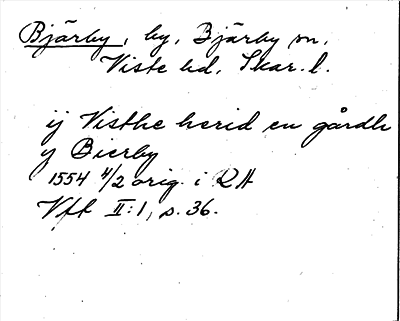 Bjärby, by, Bjärby sn,
Viste hd, Skar. l.
ij Visthe herid en gårdh
y Bierby
1554 4/2 orig. i RA
Vft II:1, s. 36.